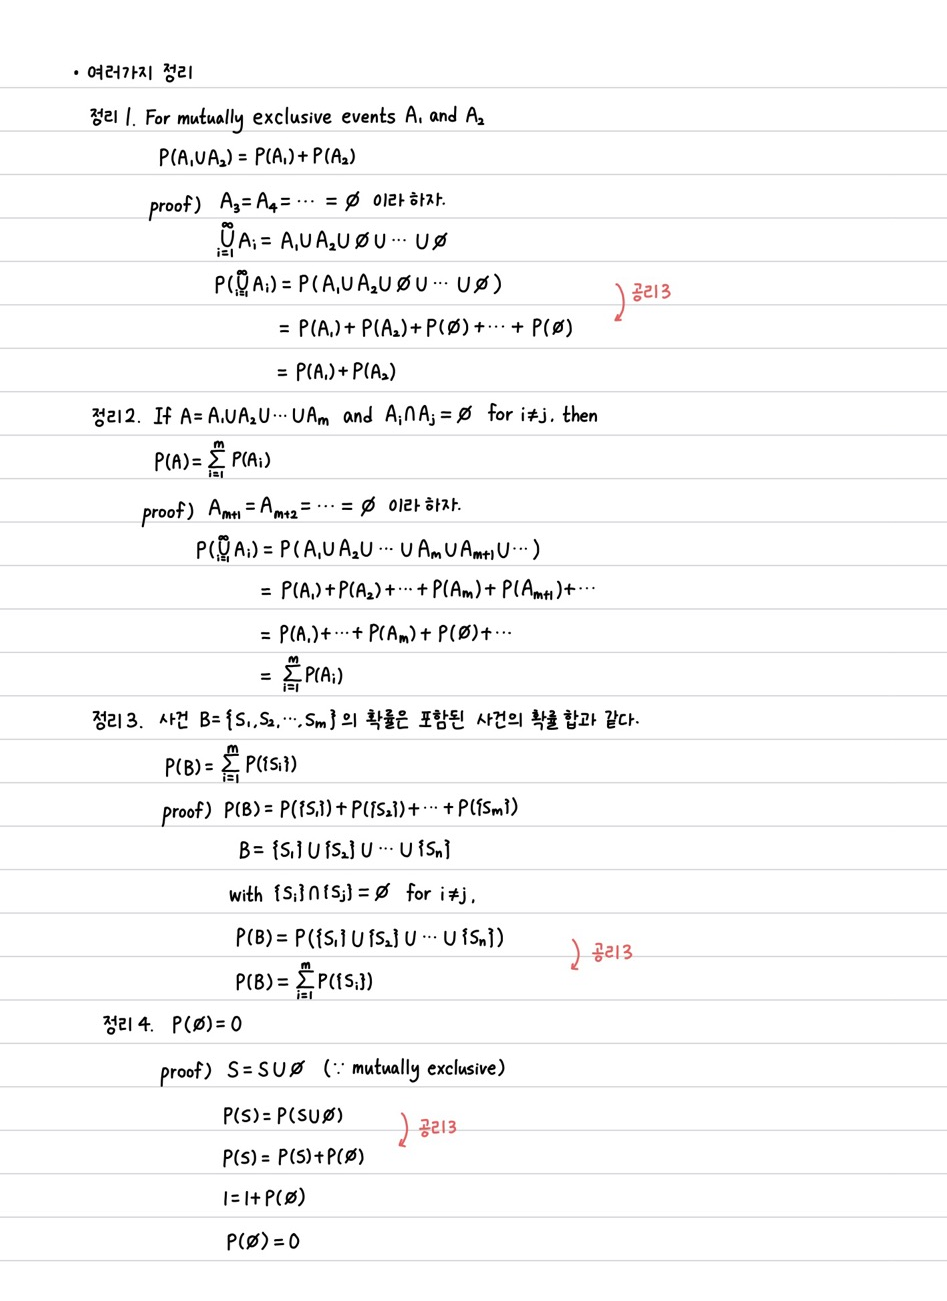 • 여러가지 정리
정리 1. For mutually exclusive events A₁ and A₂
P(A₁∪A₂) = P(A₁) + P(A₂)
proof) A₃ = A₄ = ⋯ = ∅ 이라 하자.
⋃_{i=1}^{∞} A_i = A₁∪A₂∪∅∪⋯∪∅
P(⋃_{i=1}^{∞} A_i) = P(A₁∪A₂∪∅∪⋯∪∅)
공리3
= P(A₁) + P(A₂) + P(∅) + ⋯ + P(∅)
= P(A₁) + P(A₂)
정리2. If A = A₁∪A₂∪⋯∪A_m and A_i∩A_j = ∅ for i≠j, then
P(A) = ∑_{i=1}^{m} P(A_i)
proof) A_{m+1} = A_{m+2} = ⋯ = ∅ 이라 하자.
P(⋃_{i=1}^{∞} A_i) = P(A₁∪A₂∪⋯∪A_m∪A_{m+1}∪⋯)
= P(A₁) + P(A₂) + ⋯ + P(A_m) + P(A_{m+1}) + ⋯
= P(A₁) + ⋯ + P(A_m) + P(∅) + ⋯
= ∑_{i=1}^{m} P(A_i)
정리 3. 사건 B = {S₁, S₂, ⋯, S_m}의 확률은 포함된 사건의 확률 합과 같다.
P(B) = ∑_{i=1}^{m} P({S_i})
proof) P(B) = P({S₁}) + P({S₂}) + ⋯ + P({S_m})
B = {S₁}∪{S₂}∪⋯∪{S_n}
with {S_i}∩{S_j} = ∅ for i≠j,
P(B) = P({S₁}∪{S₂}∪⋯∪{S_n})
공리3
P(B) = ∑_{i=1}^{m} P({S_i})
정리 4. P(∅) = 0
proof) S = S∪∅ (∵ mutually exclusive)
P(S) = P(S∪∅)
공리3
P(S) = P(S) + P(∅)
1 = 1 + P(∅)
P(∅) = 0